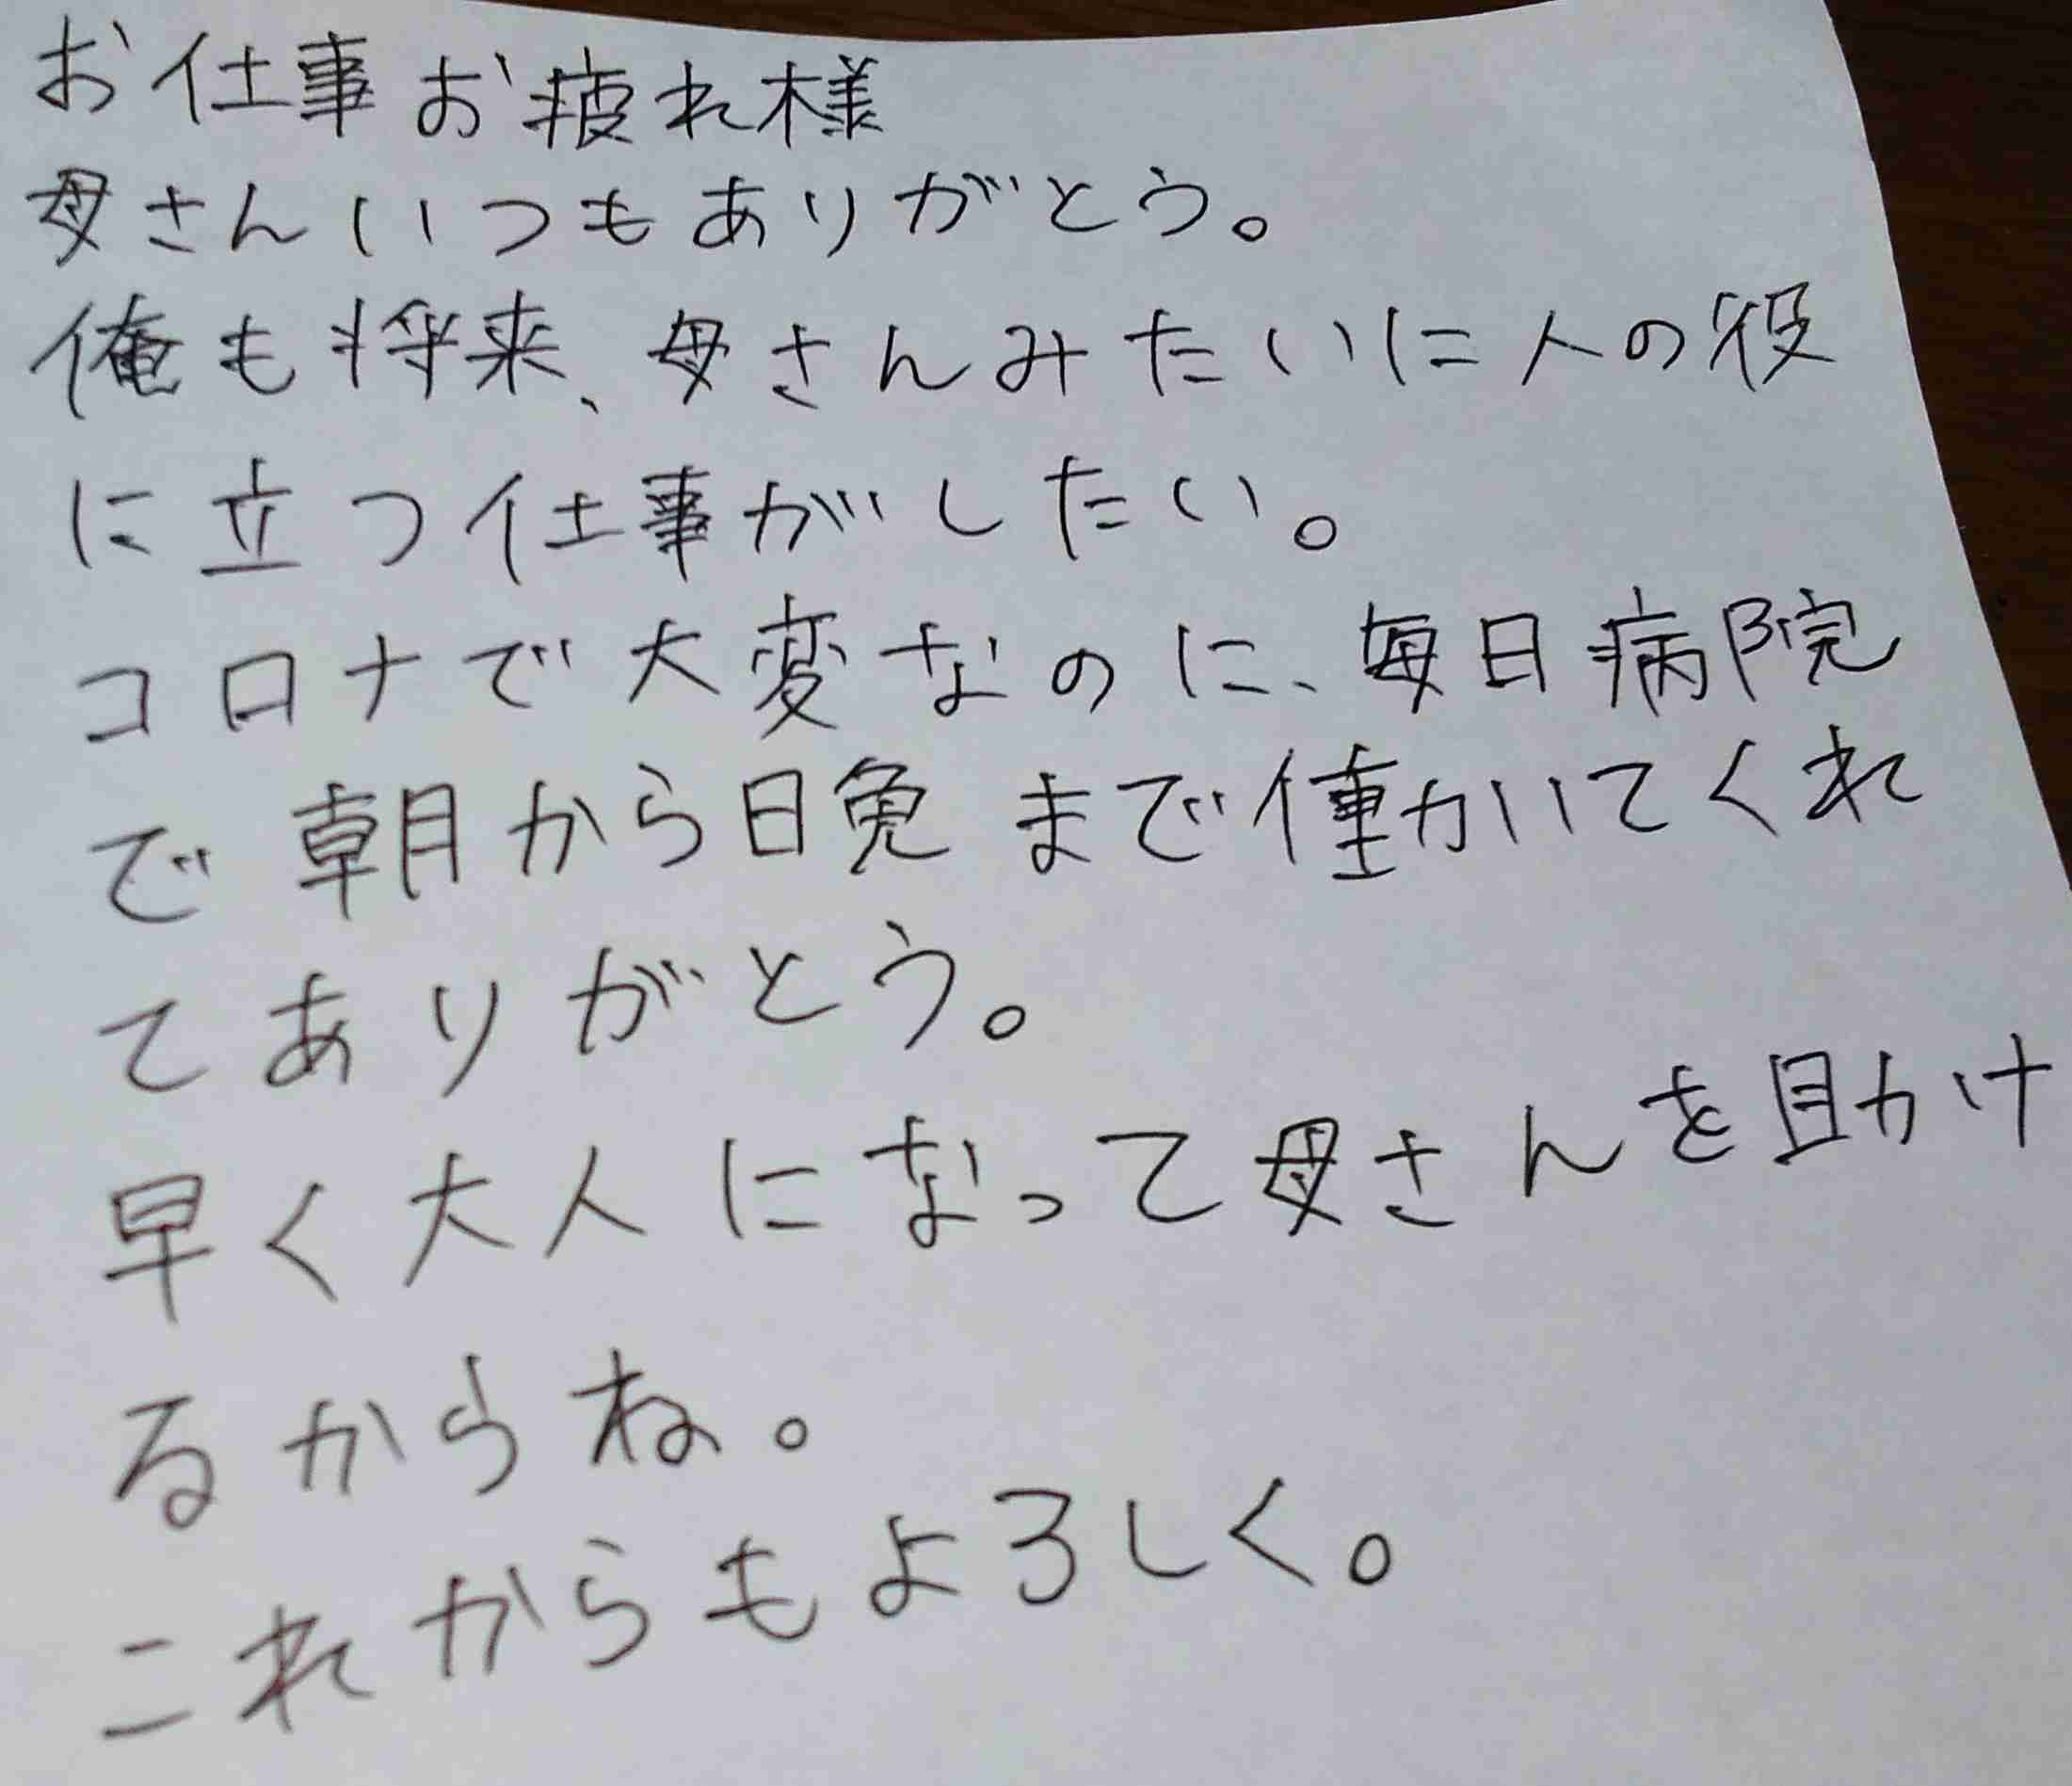 お仕事お疲れ様
母さんいつもありがとう。
俺も将来、母さんみたいに人の役
に立つ仕事がしたい。
コロナで大変なのに、毎日病院
で朝から晩まで働いてくれ
てありがとう。
早く大人になって母さんを助け
るからね。
これからもよろしく。